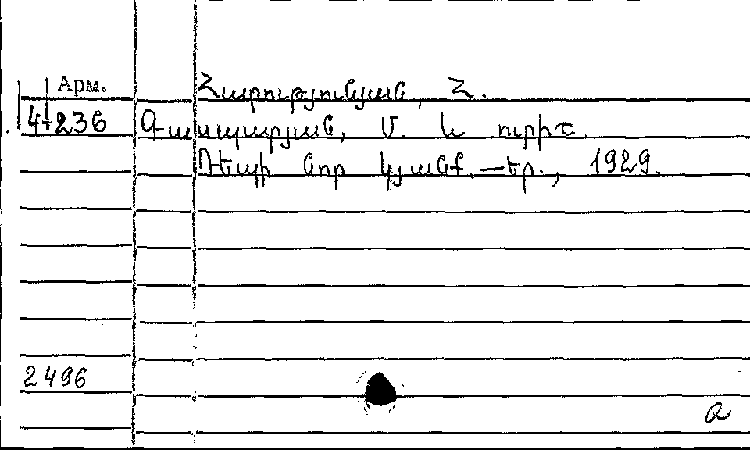 Арм.
Հարությունյան, Հ.
4-236
Գասպարյան, Մ. և ուրիշ.
Դեպի նոր կյանք.—եր., 1929.
2496
a